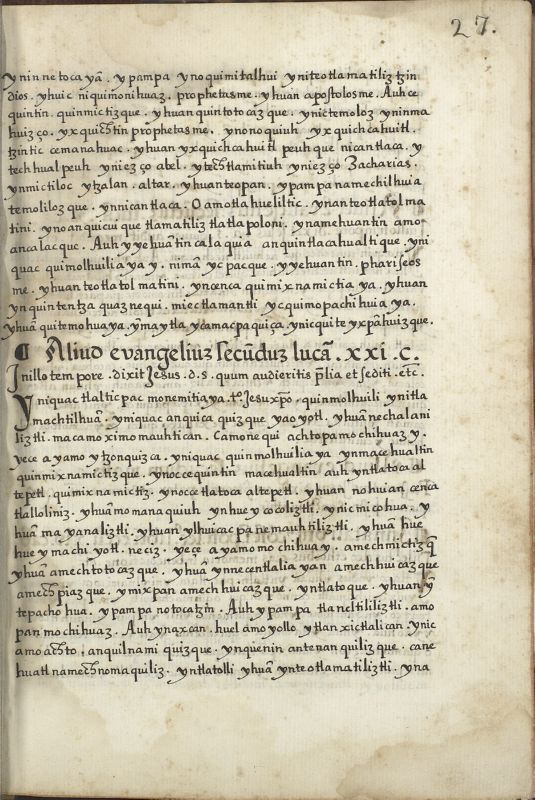 27.
ynin netocayā. ypampa ynoquimitalhui yniteotlamatiliztzin
dios. yhuic niquimonihuaz. prophetasme. yhuan apostolosme. Auh ce
quintin. quinmictizque. yhuan quintotocazque. ynictemoloz yninma
huizço. yxquichtin prophetasme. ynonoquiuh yxquichcahuitl.
tzintic cemanahuac. yhuan yxquichcahuitl peuh que nicantlaca. y
techhualpeuh yniezço abel. ytechtlamitiuh yniezço Zacharias.
ynmictiloc ytzalan. altar. yhuan teopan. ypampa namechilhuia
temolilozque. ynnicantlaca. O amotlahueliltic. ynanteotlatolma
tini. ynoanquicuique tlamatiliztlatlapoloni. ynamehuantin amo
ancalacque. Auh yyehuātin calaquia anquintlacahualtique. yni
quac quimolhuilia ya y. nimā ycpacque. yyehuantin. phariseos
me. yhuan teotlatolmatini. yncenca quimixnamictia ya. yhuan
ynquintentza quaznequi. miectlamantli ycquimopachihuia ya.
yhuā quitemohuaya. ȳmaytla ycamacpa quiça. ynicquiteyxpāhuizque.
¶ Aliud evangeliuz secūduz lucā. xxi. c.
Jnillo tempore. dixit Jesus. d. s. quum audieritis p̄lia et sediti. etc.
Yniquac tlalticpac monemitiaya. to. Jesuxp̄o. quinmolhuili ynitla
machtilhuā. yniquac anquicaquizque yaoyotl. yhuā nechalani
liztli. macamo ximomauhtican. Camonequi achtopa mochihuaz y.
yece ayamo ytzonquiça. yniquac quinmolhuilia ya ynmacehualtin
quinmixnamictizque. ynoccequintin macehualtin auh yntlatocaal
tepetl. quimixnamictiz. ynoccetlatoca altepetl. yhuan nohuian cenca
tlalloliniz. yhuā momanaquiuh ynhuey cocoliztli. ynicmicohua. y
huā mayanaliztli. yhuan ylhuicacpa nemauhtiliztli. yhuā hue
huey machiyotl. neciz. yece ayamo mochihua y. amechmictizq̄
yhuā amechtotocazque. yhuā ynnecentlalia yan amechhuicazque
amechpiazque. ymixpan amechhuicazque. yntlatoque. yhuan ȳ
tepachohua. ypampa notocatzin. Auh ypampa tlaneltililiztli. amo
pan mochihuaz. Auh ynaxcan. huel amoyollo ytlanxictlalican ynic
amo achto. anquilnamiquizque. ynquenin antenanquilizque. cane
huatl namechnomaquiliz. yntlatolli yhuā ynteotlamatiliztli. yna